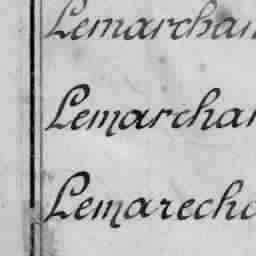 Lemarchan
Lemarchan
Lemarecha